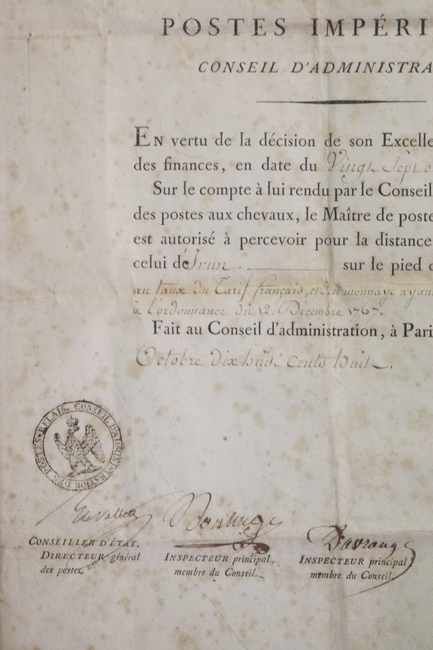 POSTES IMPÉRI
CONSEIL D'ADMINISTRA
EN vertu de la décision de son Excelle
des finances, en date du Vingt Sept
Sur le compte à lui rendu par le Conseil
des postes aux chevaux, le Maître de poste
est autorisé à percevoir pour la distance
celui de Irun. sur le pied
au taux du Tarif français, et de monnaye ayan
à l'ordonnance du 12. Décembre 1767.
Fait au Conseil d'administration, à Pari
Octobre dix huit cents huit.
RELAIS. CONSEIL D'ADMINISTRATION DES POSTES
CONSEILLER D'ÉTAT,
DIRECTEUR général
des postes
INSPECTEUR principal
membre du Conseil.
Davrange
INSPECTEUR principal
membre du Conseil.